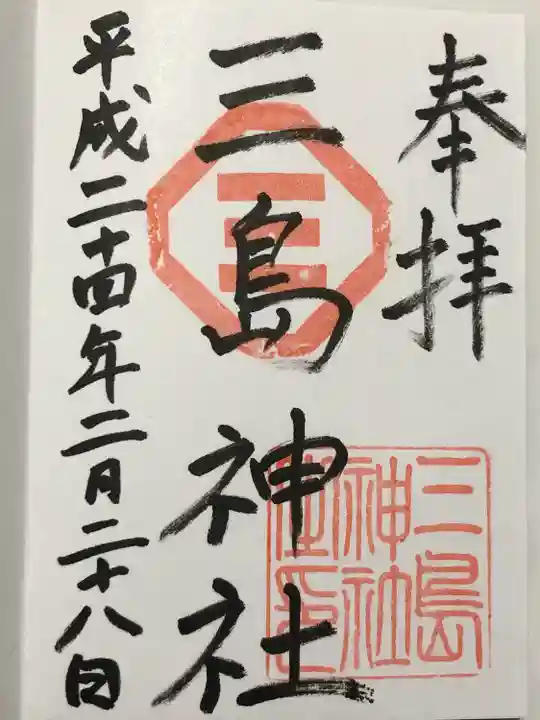 奉拝
三島神社
三島神社
平成二十四年二月二十八日